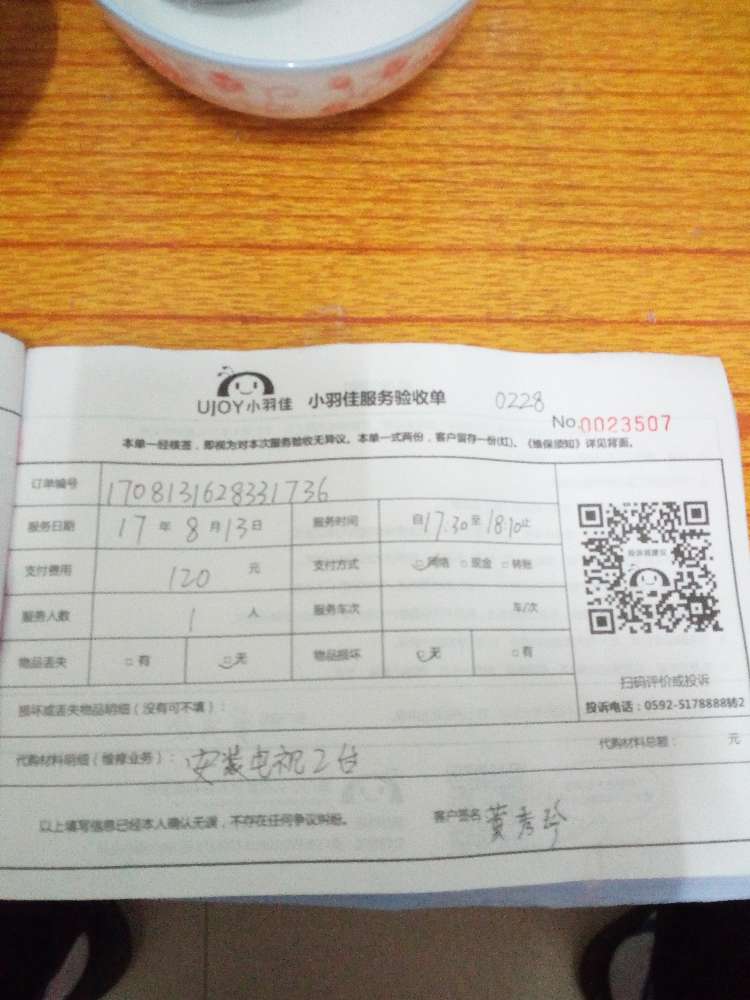 UJOY小羽佳 小羽佳服务验收单 0228
No.0023507
本单一经核签，即视为对本次服务验收无异议。本单一式两份，客户留存一份(红)。《维保须知》详见背面。
订单编号 1708131628331736
服务日期 17年8月13日 服务时间 自17:30至18:10止
支付费用 120元 支付方式 □网络 □现金 □转账
服务人数 1人 服务车次 车/次
物品丢失 □有 □无 物品损坏 □无 □有
投诉或建议
扫码评价或投诉
投诉电话：0592-5178888转2
损坏或丢失物品明细（没有可不填）：
代购材料明细（维修业务）：安装电视2台 代购材料总额： 元
以上填写信息已经本人确认无误，不存在任何争议纠纷。 客户签名